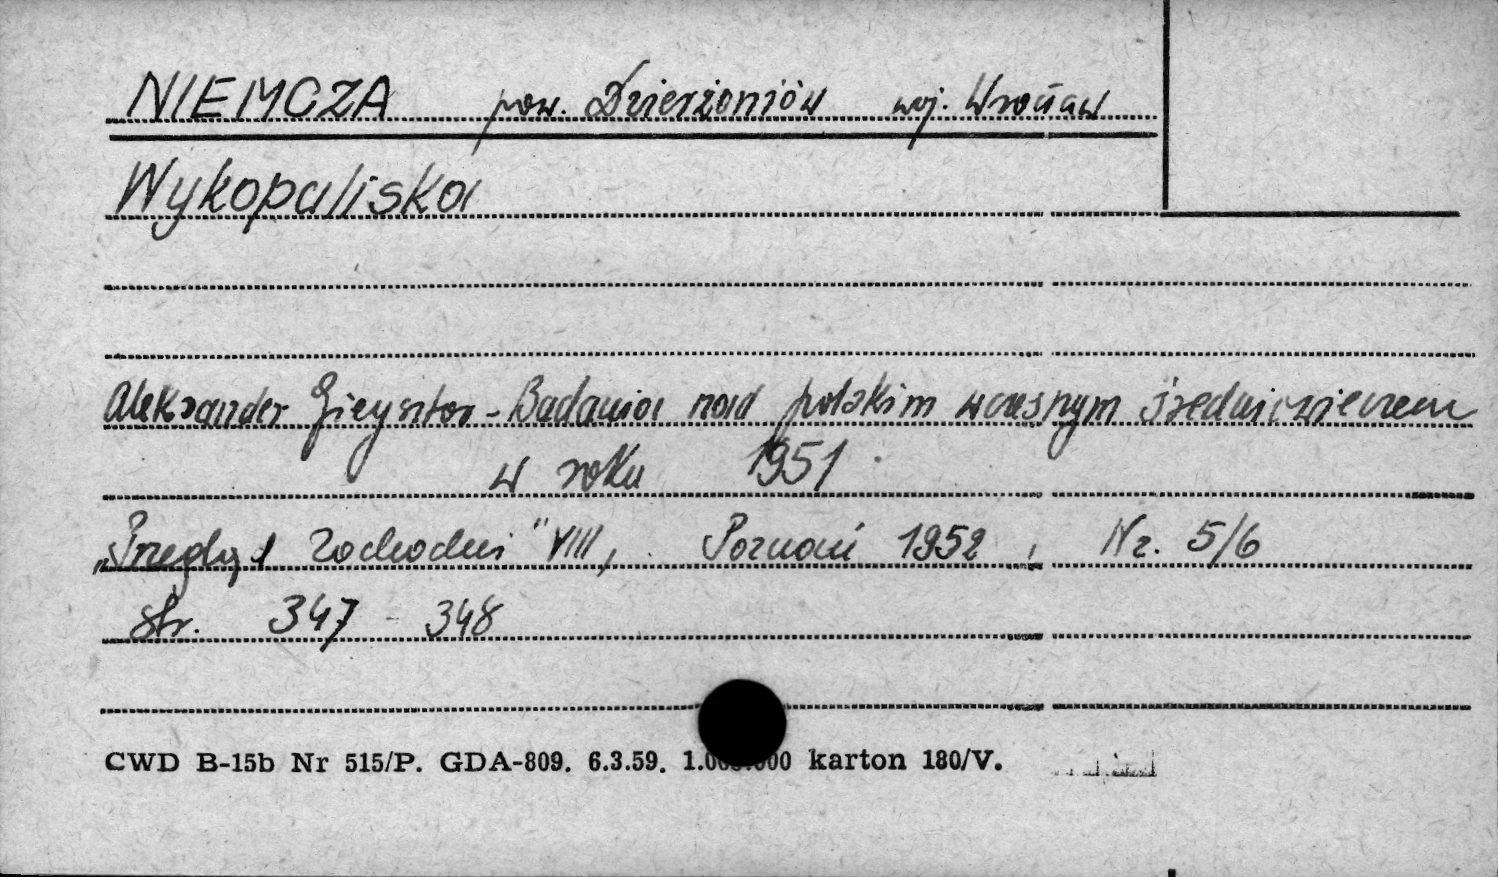 NIEMCZA pow. Dzierżoniów woj. Wrocław
Wykopaliska
Aleksander Gieysztor - Badania nad polskim wczesnym średniowieczem
w roku 1951.
"Przegląd Zachodni" VIII, Poznań 1952, Nr. 5/6
str. 347 - 348
CWD B-15b Nr 515/P. GDA-809. 6.3.59. 1.000.000 karton 180/V.